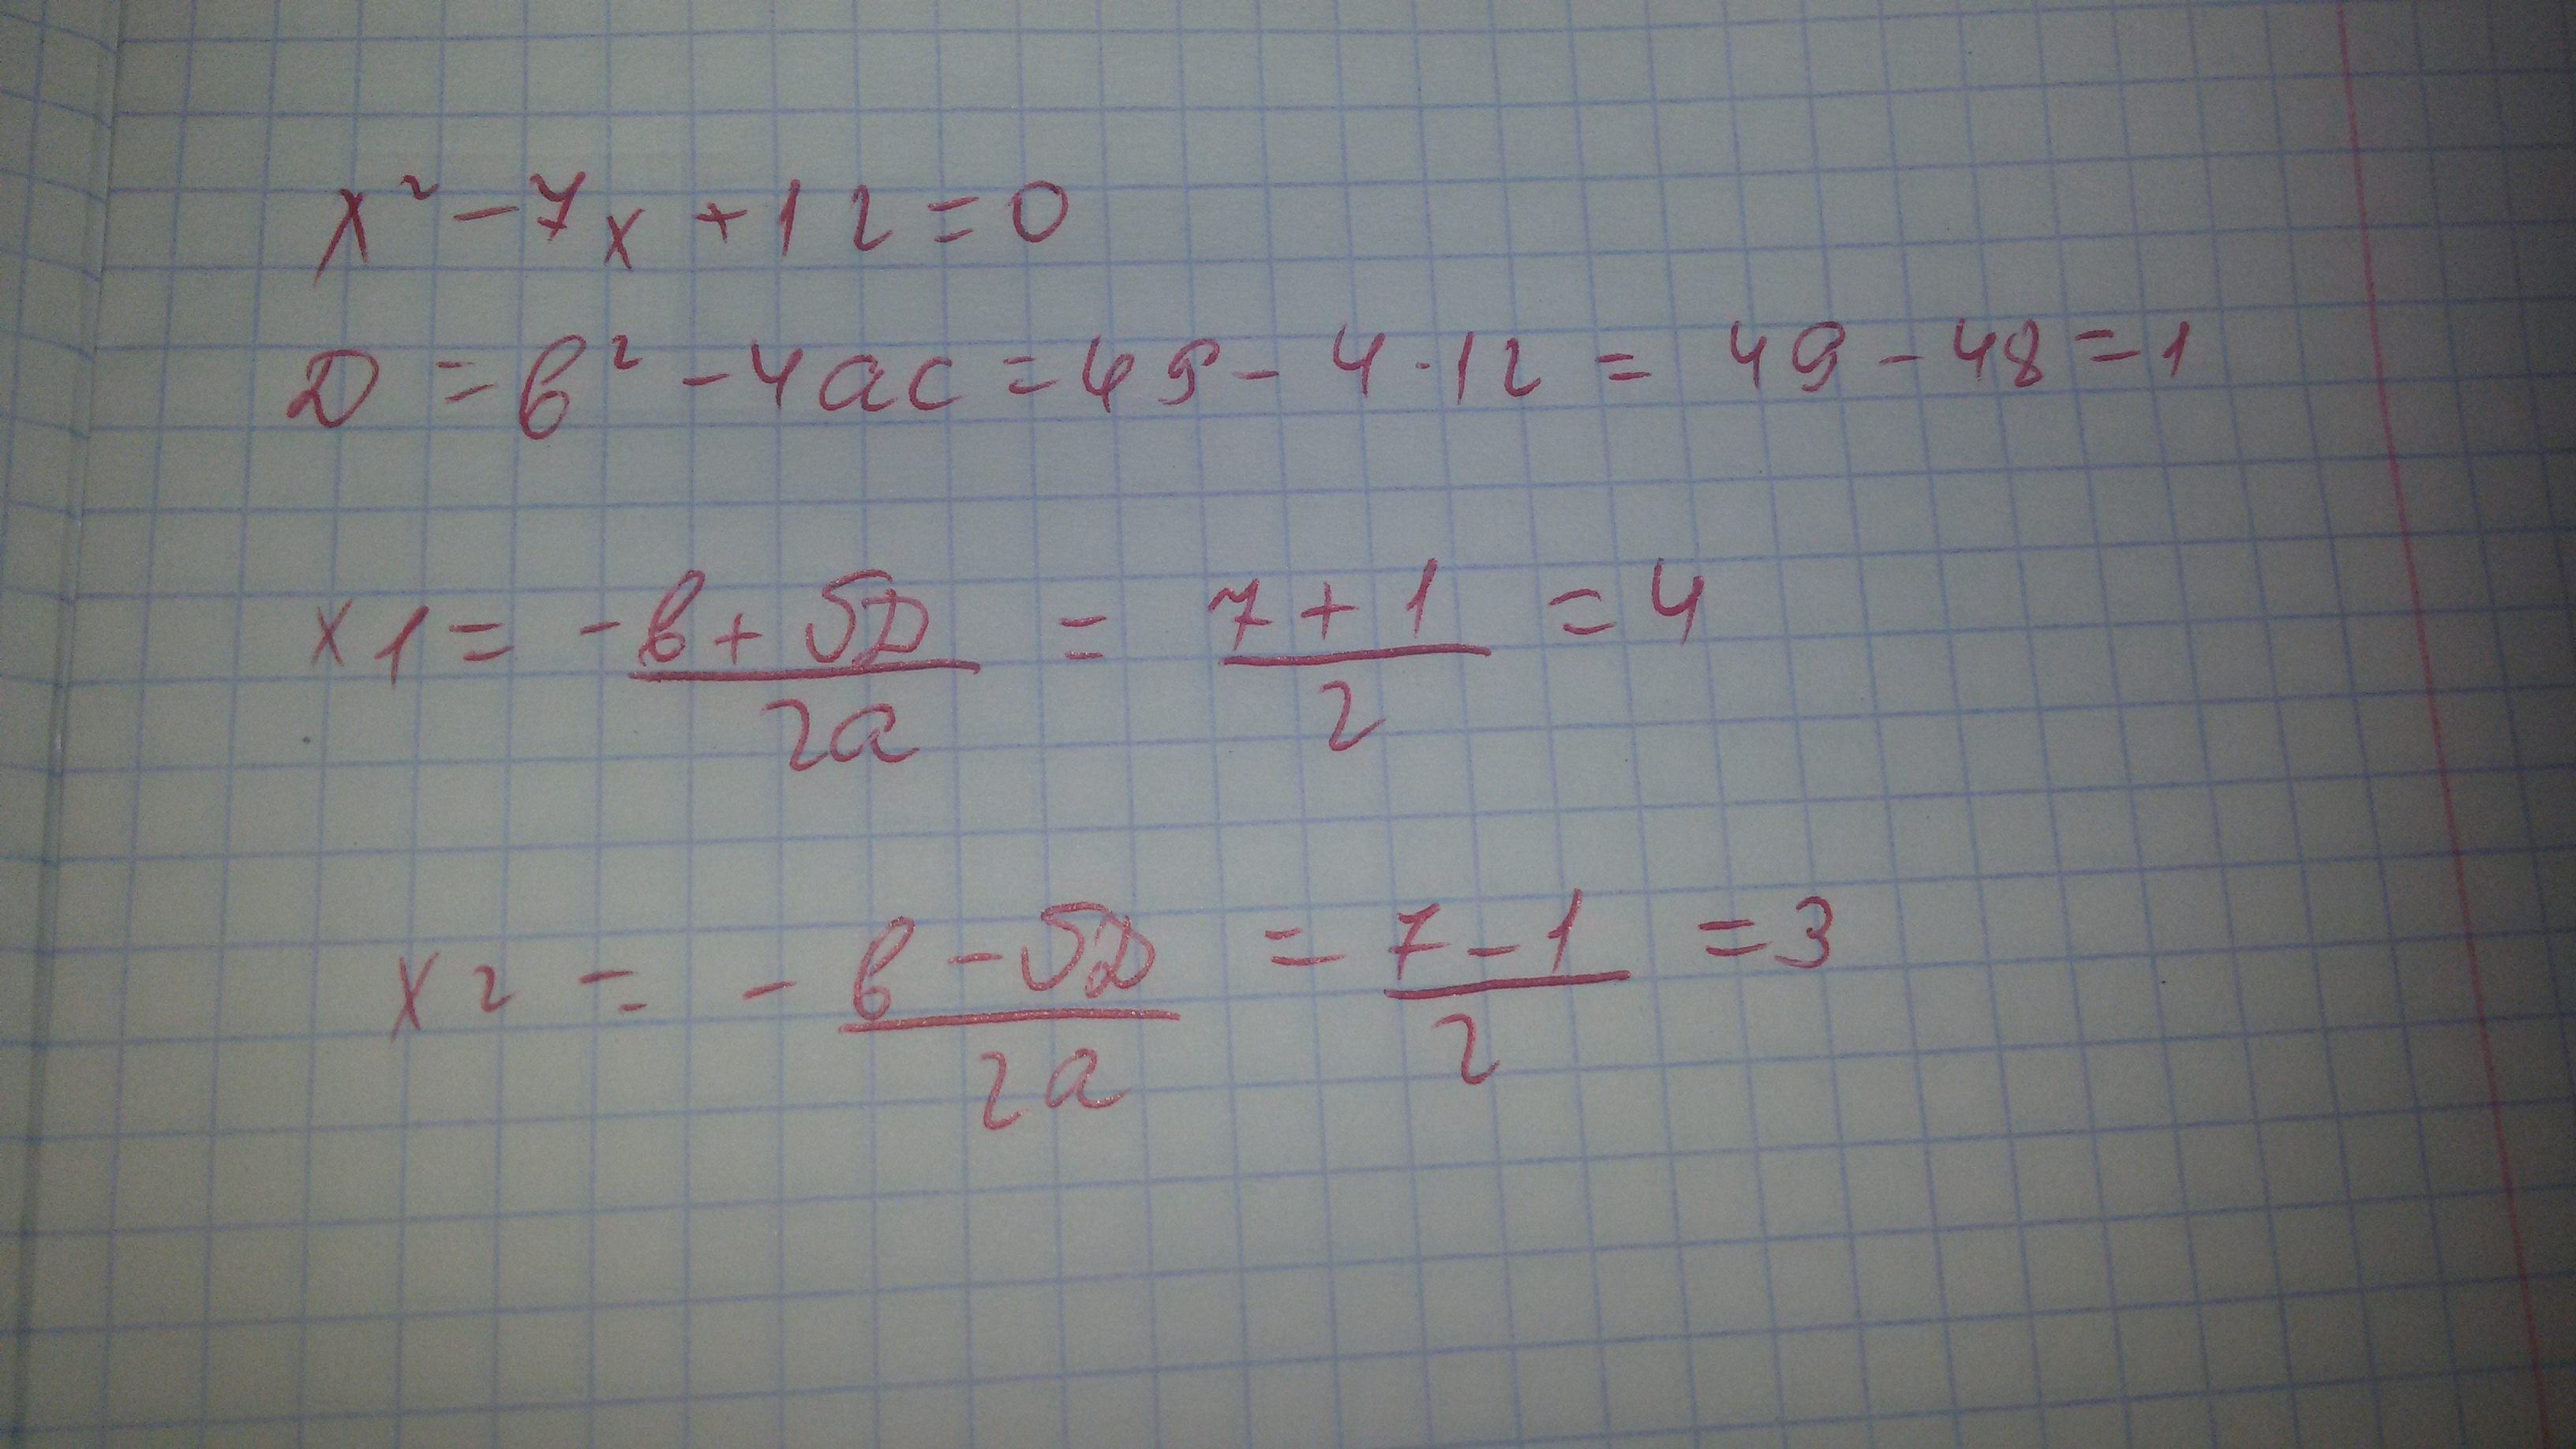 x² - 7x + 12 = 0
D = b² - 4ac = 49 - 4·12 = 49 - 48 = 1
x1 = -b + √D / 2a = 7 + 1 / 2 = 4
x2 = -b - √D / 2a = 7 - 1 / 2 = 3